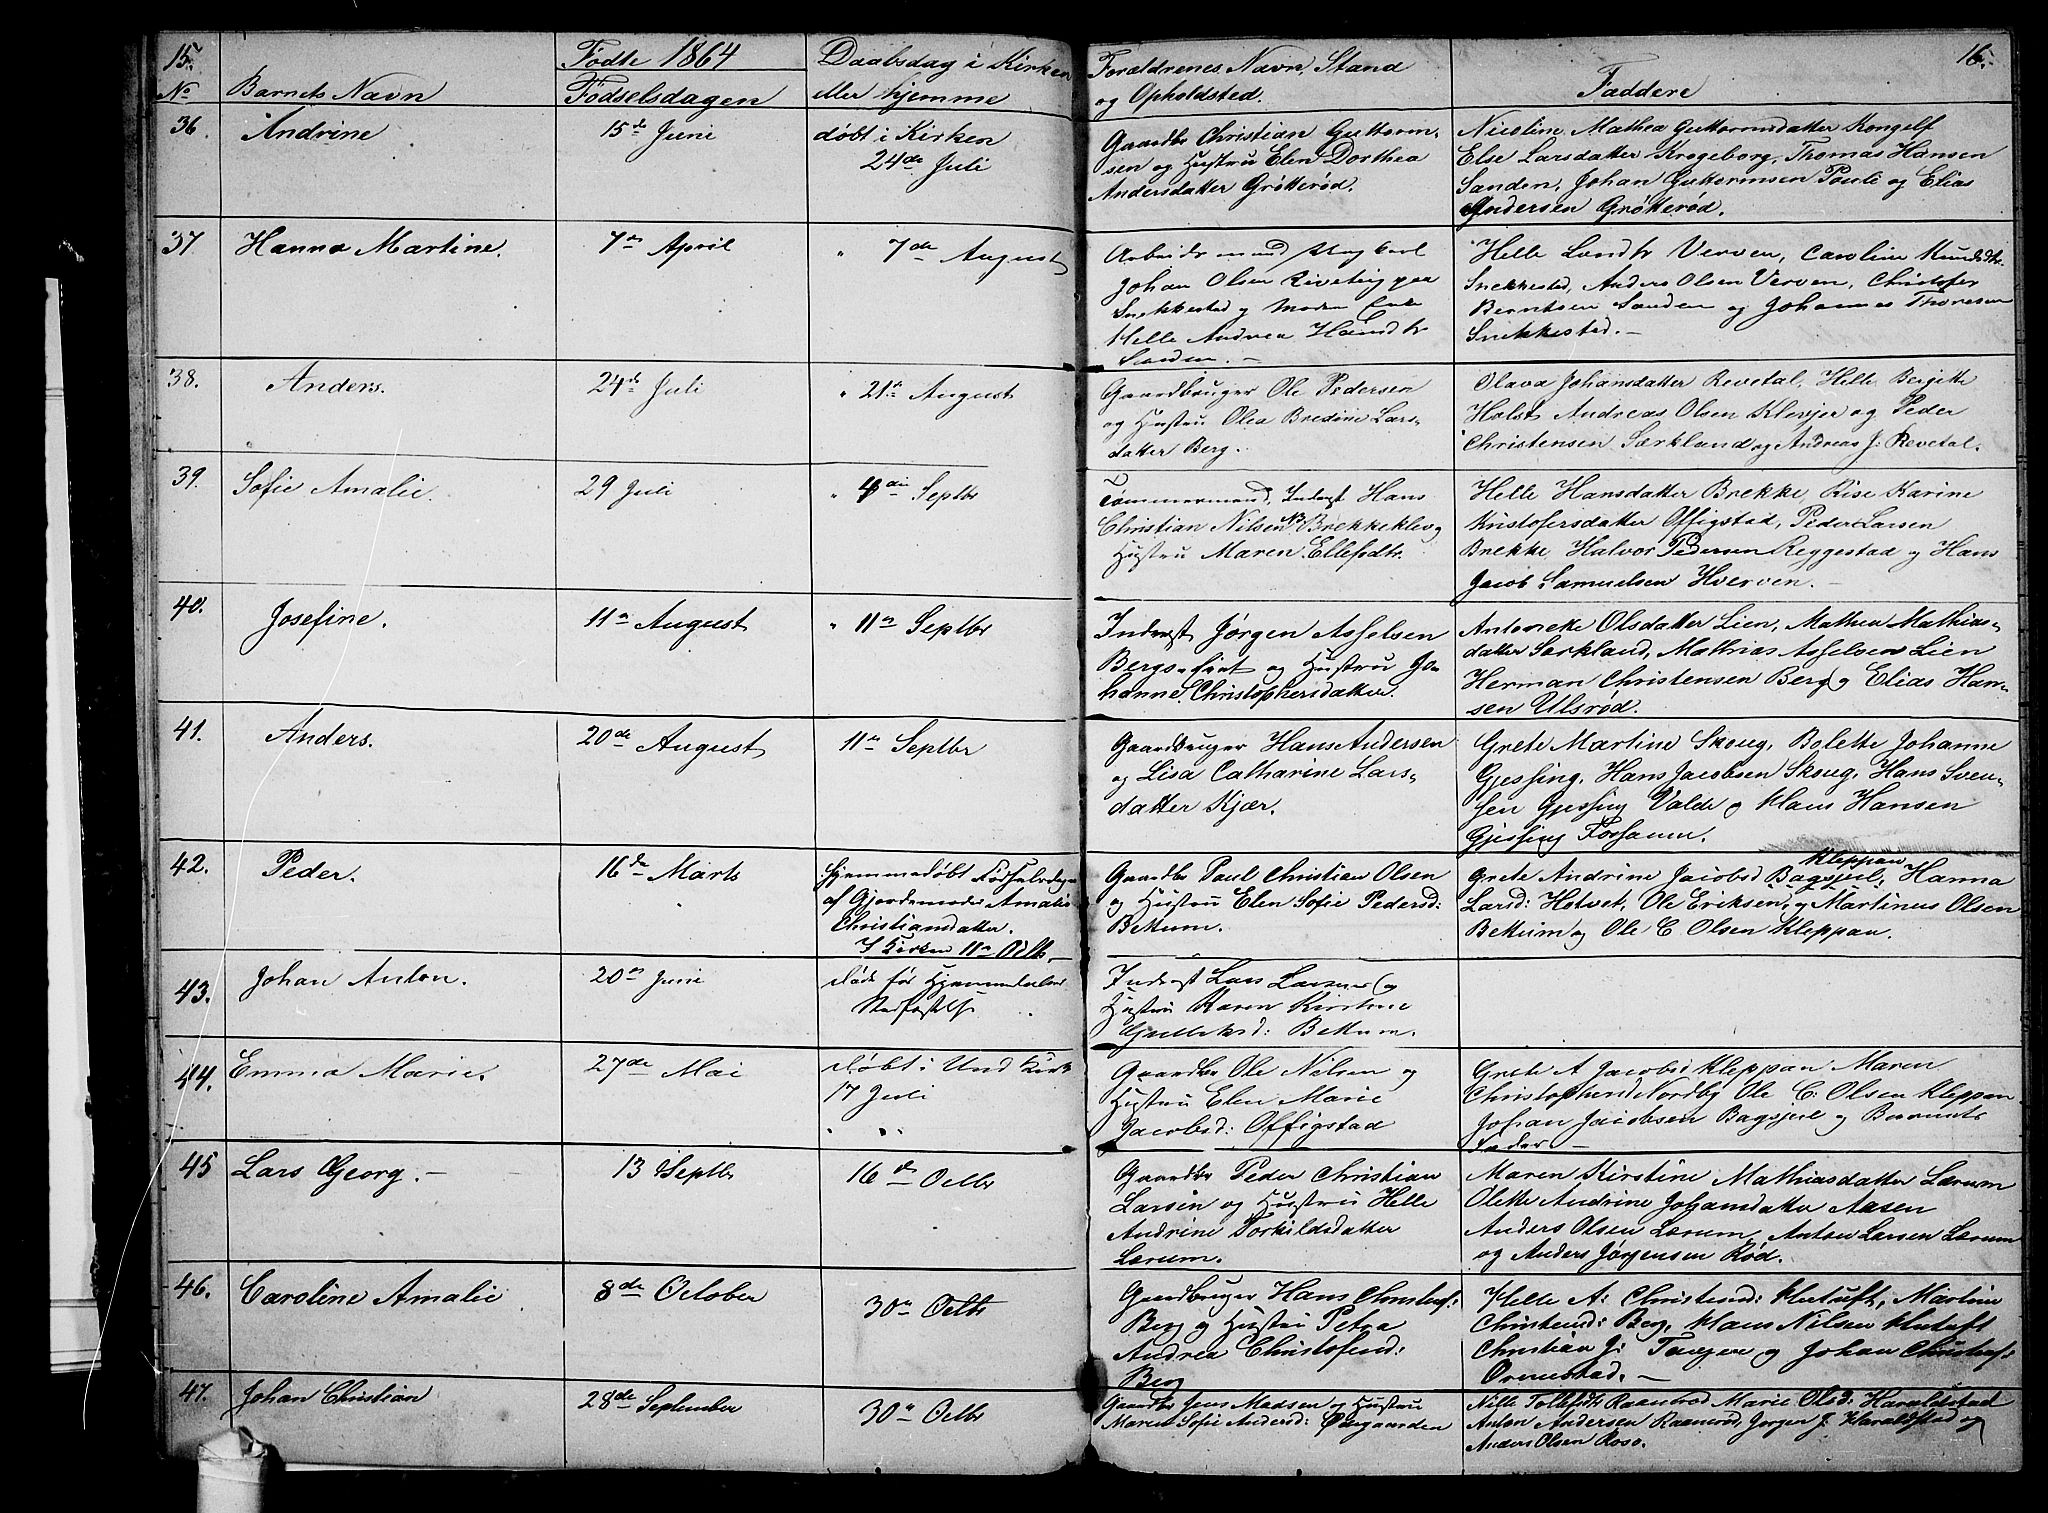 15. Fødte 1864 Daabsdag i Kirken Forældrenes Navn, Stand 16.
No Barnets Navn Fødselsdagen eller hjemme og Opholdsted. Faddere
36. Andrine 15de Juni døbt i Kirken 24de Juli
Gaardbr Christian Guttorm-
sen og Hustru Elen Dorthea
Andersdatter Grøtterød.
Nicoline Mathea Guttormsdatter Kongelf
Else Larsdatter Krogeborg, Thomas Hansen
Sanden, Johan Guttormsen Pauli og Elias
Andersen Grøtterød.
37 Hanna Martine. 7de April " 7de August
Arbeidsmand Ungkarl
Johan Olsen
Snekkestad og Moder Enke
Helle Andrea
Sanden. -
Helle Verven, Caroline
Snekkestad, Anders Olsen Verven, Christofer
Berntsen Sanden og Johannes Thoresen
Snekkestad. -
38. Anders. 24de Juli " 21de August
Gaardbruger Ole Pedersen
og Hustru Olea Bredine Lars-
datter Berg.
Olava Johansdatter Revetal, Helle Bergitte
Holst Andreas Olsen Klevjer og Peder
Christensen Særkland og Andreas J: Revetal.
39. Sofie Amalie. 29 Juli " 4de Septbr
Tømmermand, Inderst Hans
Christian Nilsen Brekkeklev og
Hustru Maren Ellefsdtr.
Helle Hansdatter Brekke, Rise Karine
Kristofersdatter Offigstad, Peder Larsen
Brekke, Halvor Pedersen Reggestad og Hans
Jacob Samuelsen Hverven. -
40. Josefine. 11te August " 11te Septbr
Inderst Jørgen Asselsen
Bergs-eiet og Hustru Jo-
hanne Christophersdatter.
Antoneke Olsdatter Lien, Mathea Mathias-
datter Særkland, Mathias Asselsen Lien
Herman Christensen Berg og Elias Han-
sen Ulsrød.
41. Anders. 20de August 11te Septbr
Gaardbruger Hans Andersen
og Lisa Catharine Lars-
datter Kjær.
Grete Martine Skoug, Bolette Johanne
Gjessing, Hans Jacobsen Skoug, Hans Sven-
sen Gjessing Valde og Klaus Hansen
Gjessing Fossanen.
42. Peder. 16de Marts
Hjemmedøbt Fødselsdagen
af Gjordemoder Amalie
Christiansdatter.
I Kirken 11te Octb.
Gaardbr Paul Christian Olsen
og Hustru Elen Sofie Pedersd:
Bettum.
Kleppan
Grete Andrine Jacobsd Bagsjul, Hanna
Larsd: Helvet, Ole Eriksen og Martinus Olsen
Bettum og Ole C Olsen Kleppan.
43. Johan Anton. 20de Juni
døde før Hjemmedaabens
Stadfæstelse
Inderst Lars Larsen og
Hustru Karen Kirstine
Gulleksd: Bettum.
44. Emma Marie. 27de Mai
døbt i Und Kirk
17 Juli
Gaardbr Ole Nilsen og
Hustru Elen Marie
Jacobsd: Offigstad
Grete A Jacobsd Kleppan Maren
Christophersd Nordby Ole C. Olsen Kleppan
Johan Jacobsen Bagsjul og Barnets
Fader -
45 Lars Georg. - 13 Septbr 16de Octbr
Gaardbr Peder Christian
Larsen og Hustru Helle
Andrine Torkildsdatter
Lærum.
Maren Kirstine Mathiasdatter Lærum
Olette Andrine Johansdatter Aasen
Anders Olsen Lærum, Anton Larsen Lærum
og Anders Jørgensen Rød.
46. Caroline Amalie 8de October 30te Octbr
Gaardbruger Hans Christofs:
Berg og Hustru Petra
Andrea Christofersd:
Berg
Helle A: Christensd: Hutuft, Martine
Christensd: Berg, Klaus Nilsen Hutuft
Christian J: og Johan Christofs:
Ormestad. -
47. Johan Christian 28de September 30te Octbr
Gaardbr Jens Madsen og Hustru
Maren Sofie Andersd: Østgaarden
Nille Tollefsdtr Raanerød Marie Olsd: Haraldstad
Anton Andersen Raanerød, Jørgen J. Haraldstad og
Anders Olsen Roso.